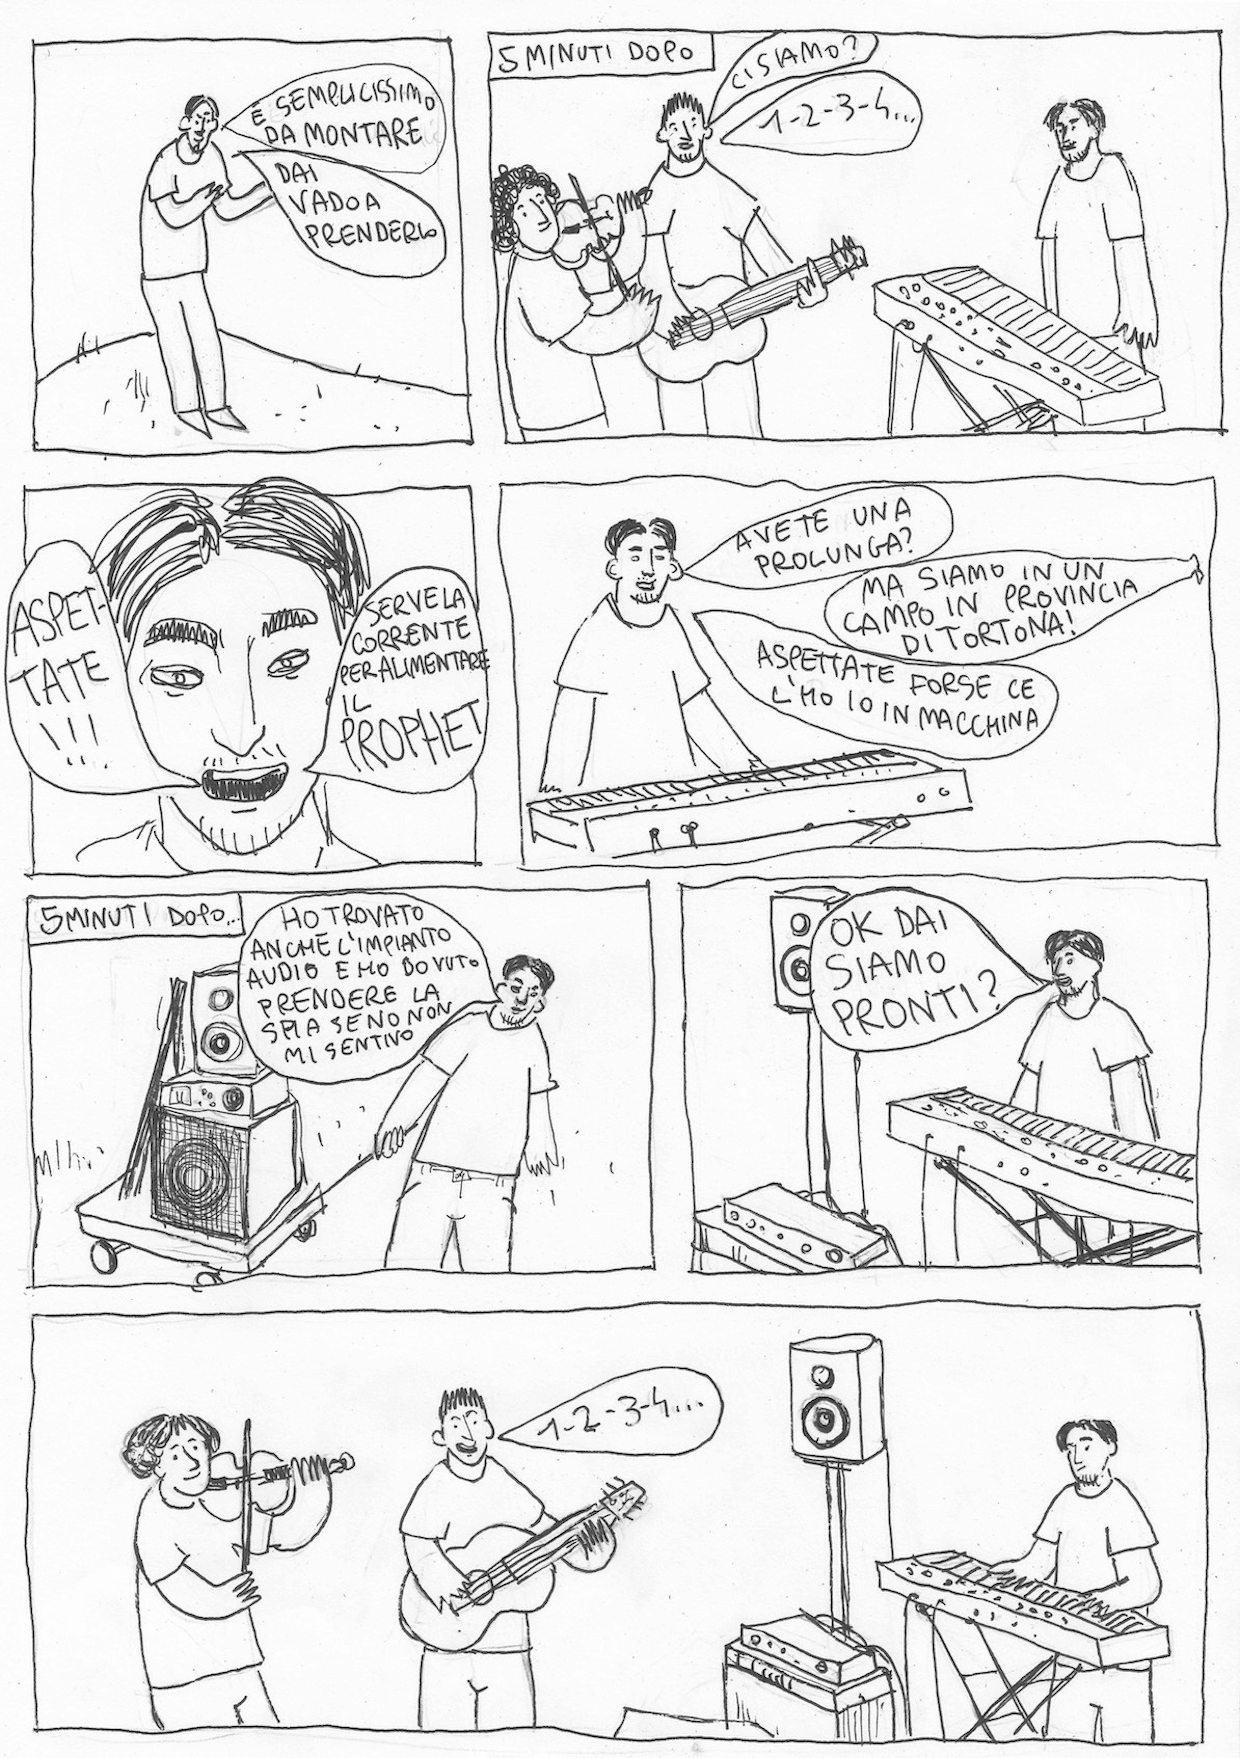 È SEMPLICISSIMO
DA MONTARE
DAI
VADO A
PRENDERLO
5 MINUTI DOPO
CI SIAMO?
1-2-3-4...
ASPET-
TATE
!!!
SERVE LA
CORRENTE
PER ALIMENTARE
IL
PROPHET
AVETE UNA
PROLUNGA?
MA SIAMO IN UN
CAMPO IN PROVINCIA
DI TORTONA!
ASPETTATE FORSE CE
L'HO IO IN MACCHINA
5 MINUTI DOPO...
HO TROVATO
ANCHE L'IMPIANTO
AUDIO E HO DOVUTO
PRENDERE LA
SPIA SE NO NON
MI SENTIVO
OK DAI
SIAMO
PRONTI?
1-2-3-4...